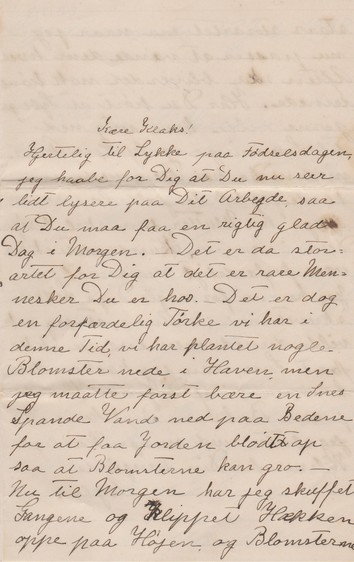 Kære Klaks!
Hjertelig til Lykke paa Fødselsdagen,
jeg haabe for Dig at Du nu seer
lidt lysere paa Dit Arbejde, saa
at Du maa faa en rigtig glad
Dag i Morgen. – Det er da stor-
artet for Dig at det er rare Men-
nesker Du er hos. – Det er dog
en forfærdelig Tørke vi har i
denne Tid, vi har plantet nogle
Blomster nede i Haven, men
jeg maatte først bære en Snes
Spande Vand ned paa Bedene
for at faa Jorden blødt op
saa at Blomsterne kan gro. –
Nu til Morgen har jeg skuffet
Gangene og Klippet Hækken
oppe paa Højen, og Blomsterne